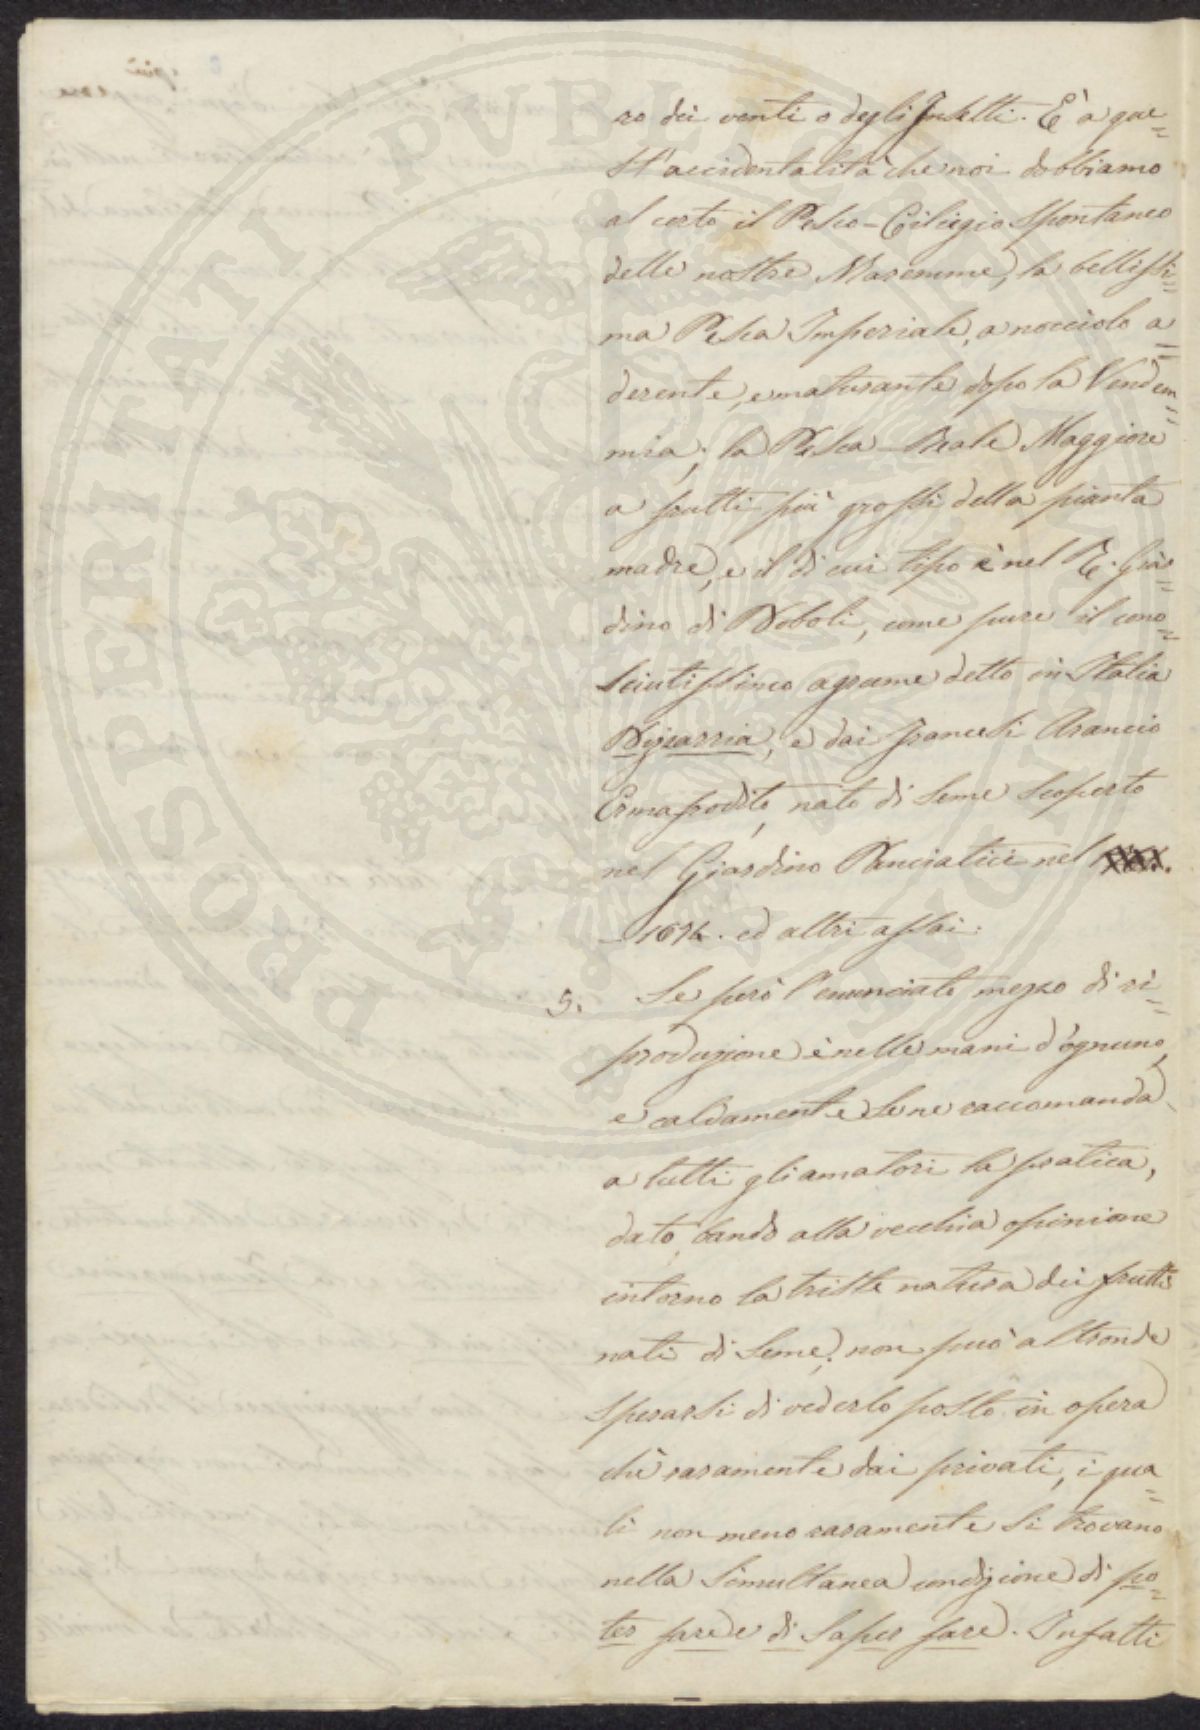 ro dei venti o degli Insetti. È a que=
st'accidentalità che noi dobbiamo
al certo il Pesco-Ciliegio spontaneo
delle nostre Maremme, la bellissi=
ma Pesca Imperiale, a nocciolo a=
derente, e maturante dopo la Vendem=
mia; la Pesca-Reale Maggiore
a frutti più grossi della pianta
madre, e il di cui tipo è nel R. Giar=
dino di Boboli, come pure il cono=
sciutissimo agrume detto in Italia
Bizzarria, e dai francesi Arancio
Ermafrodito, nato di seme scoperto
nel Giardino Panciatici nel
1674. ed altri assai.
5. Se però l'enunciato mezzo di ri=
produzione è nelle mani d'ognuno,
e caldamente se ne raccomanda
a tutti gli amatori la pratica,
dato bando alla vecchia opinione
intorno la triste natura dei frutti
nati di seme; non può altronde
sperarsi di vederlo posto in opera
chè raramente dai privati, i qua=
li non meno raramente si trovano
nella simultanea condizione di po=
ter fare e di saper fare. Infatti
PROSPERITATI PVBLICAE